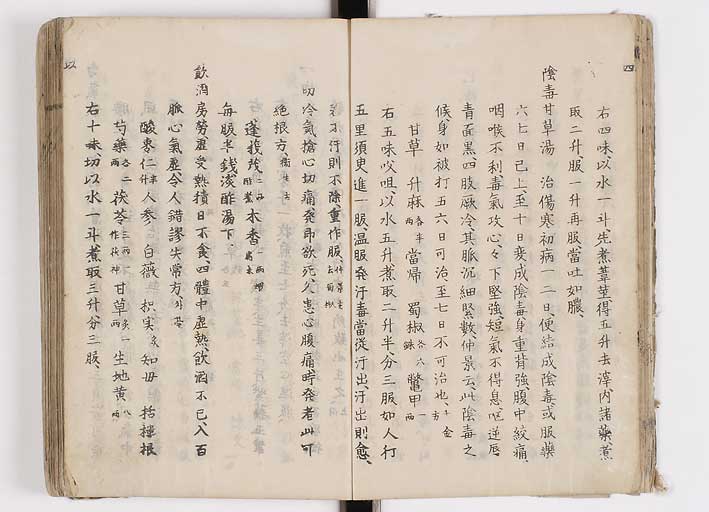 右四味以水一斗先煮葦莖得五升去滓内諸藥煮
取二升服一升再服當吐如膿
陰毒甘草湯 治傷寒初病一二日便結成陰毒或服藥
六七日已上至十日変成陰毒身重背強腹中絞痛
咽喉不利毒氣攻心々下堅強短氣不得息嘔逆唇
青面黒四肢厥冷其脈沉細緊數仲景云此陰毒之
候身如被打五六日可治至七日不可治也
甘草 升麻各半兩 當帰 蜀椒各六銖 鼈甲一兩
右五味㕮咀以水五升煮取二升半分三服如人行
五里須臾進一服温服発汗毒當從汗出汗出則愈
若不行則不除重作服
一切冷氣搶心切痛発即欲死久患心腹痛時発者此可
絶根方
蓬莪茂二兩醋煮 木香一兩煨
每服半錢淡酢湯下
飲酒房勞虚受熱積日不食四體中虚熱飲酒不已入百
脈心氣虚令人錯謬失常方
酸棗仁半升 人参 白薇 枳実 知母 栝樓根
芍藥各二兩 茯苓三兩 甘草炙一兩 生地黄八兩
右十味切以水一斗煮取三升分三服